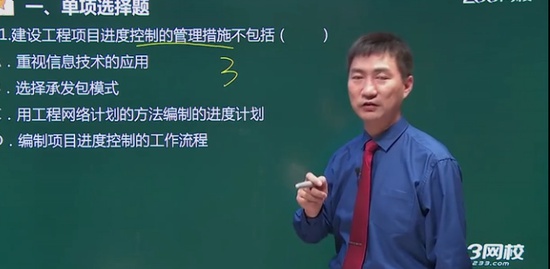 一、单项选择题
1.建设工程项目进度控制的管理措施不包括（ ）
．重视信息技术的应用
．选择承发包模式
．用工程网络计划的方法编制的进度计划
．编制项目进度控制的工作流程
3
3网校
233.com